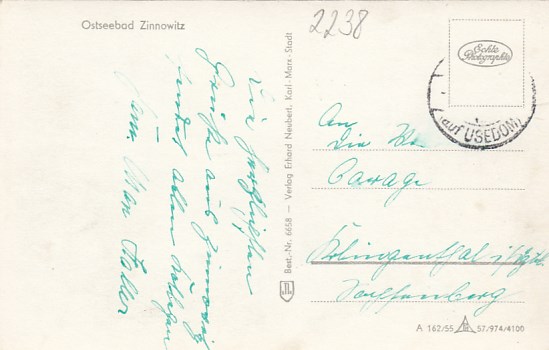 Ostseebad Zinnowitz
2238
Echte
Photographie
(auf USEDOM)
Die herzlichsten
Grüße aus Zinnowitz
sendet allen Kollegen
Fam. Max
An
Die
Garage
Klingenthal i/
Best.-Nr. 6658 — Verlag Erhard Neubert, Karl-Marx-Stadt
A 162/55 57/974/4100